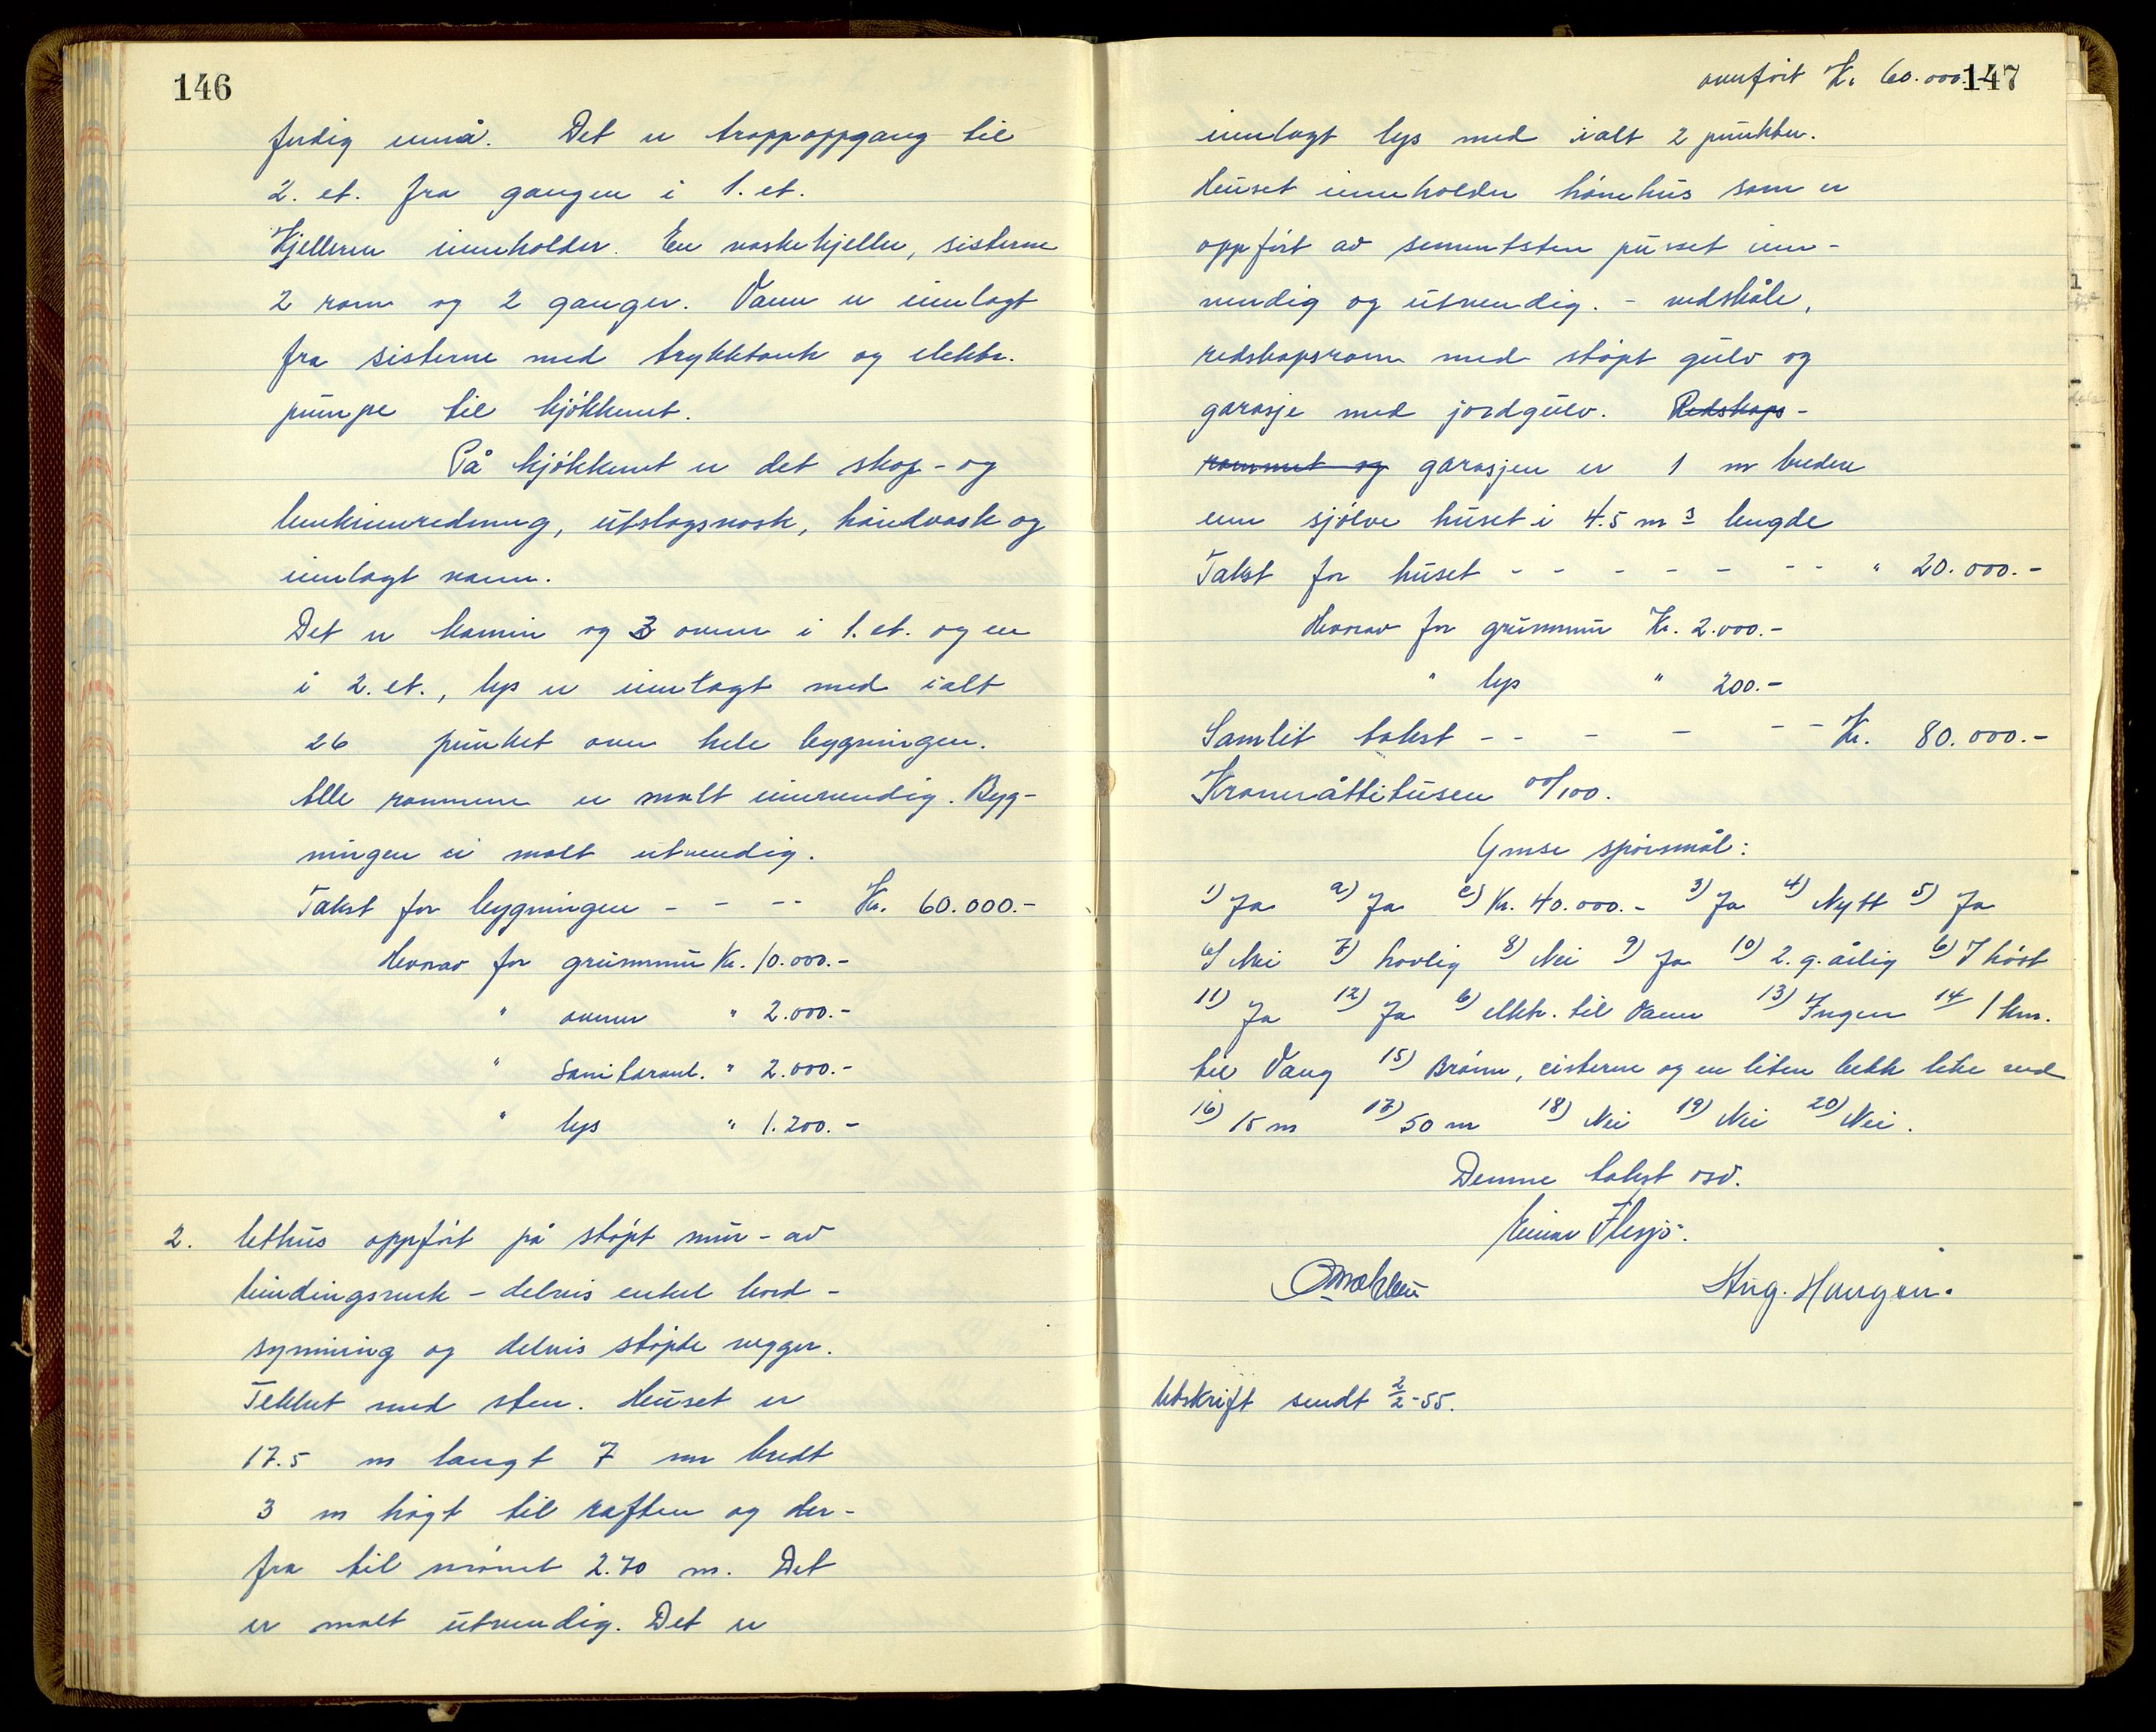 146
ferdig ennå. Det er trappoppgang til
2. et. fra gangen i 1. et.
Kjelleren inneholder. En vaskekjeller, sisterne
2 rom og 2 ganger. Vann er innlagt
fra sisterne med trykktank og elektr.
pumpe til kjøkkenet.
På kjøkkenet er det skap- og
benkinnredning, utslagsvask, håndvask og
innlagt vann.
Det er kamin og 3 ovner i 1. et. og en
i 2. et., lys er innlagt med ialt
26 punket over hele bygningen.
Alle rommene er malt innvendig. Byg-
ningen ei malt utvendig.
Takst for bygningen - - -- Kr. 60.000.-
Hvorav for grunnmur Kr. 10.000.-
" ovner " 2.000.-
" Sanitæranl. " 2.000.-
" lys " 1.200.-
2. Uthus oppført på støpt mur - av
bindingsverk - delvis enkel bord-
synning og delvis støpte vegger.
Tekket med sten. Huset er
17.5 m langt 7 m bredt
3 m høgt til raften og der-
fra til mønet 2.70 m. Det
er malt utvendig. Det er
overført Kr. 60.000.- 147
innlagt lys med ialt 2 punkter.
Huset inneholder hønehus som er
oppført av sementsten pusset inn-
vendig og utvendig. - vedskåle,
redskapsrom med støpt gulv og
garasje med jordgulv. Redskaps-
rommet og garasjen er 1 m bredere
enn sjølve huset i 4.5 m s lengde
Takst for huset - - - - - - - " 20.000.-
Hvorav for grunnmur Kr. 2.000.-
" lys " 200.-
Samlet takst - - - - - - Kr. 80.000.-
Kroneråttitusen 00/100.
Ymse spørsmål:
1) Ja a) Ja c) Kr. 40.000.- 3) Ja 4) Nytt 5) Ja
6) Nei 7) Lovlig 8) Nei 9) Ja 10) 2. g. årlig b) I høst
11) Ja 12) Ja b) elektr. til Vann 13) Ingen 14 1 km.
til Vang 15) Brønn, cisterne og en liten bekk like ved
16) 15 m 17) 50 m 18) Nei 19) Nei 20) Nei.
Denne takst osv.
Einar Flesjø.
Aug. Haugen.
Utskrift sendt 2/2-55.